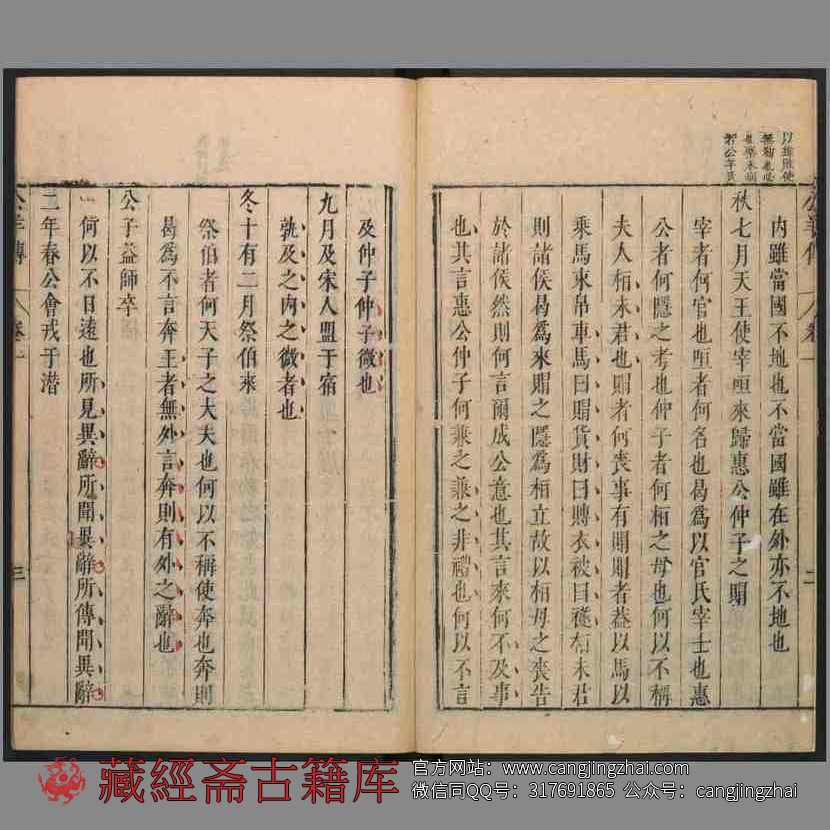 內雖當國不地也不當國雖在外亦不地也
秋七月天王使宰咺來歸惠公仲子之賵
宰者何官也咺者何名也曷為以官氏宰士也惠
公者何隱之考也仲子者何桓之母也何以不稱
夫人桓未君也賵者何喪事有賵賵者蓋以馬以
乘馬束帛車馬曰賵貨財曰賻衣被曰襚桓未君
則諸侯曷為來賵之隱為桓立故以桓母之喪告
於諸侯然則何言爾成公意也其言來何不及事
也其言惠公仲子何兼之兼之非禮也何以不言
及仲子仲子微也
九月及宋人盟于宿
孰及之內之微者也
冬十有二月祭伯來
祭伯者何天子之大夫也何以不稱使奔也奔則
曷為不言奔王者無外言奔則有外之辭也
公子益師卒
何以不日遠也所見異辭所聞異辭所傳聞異辭
二年春公會戎于潛
公羊傳 卷一
三
藏經斋古籍库
官方网站：www.cangjingzhai.com
微信同QQ号：317691865 公众号：cangjingzhai